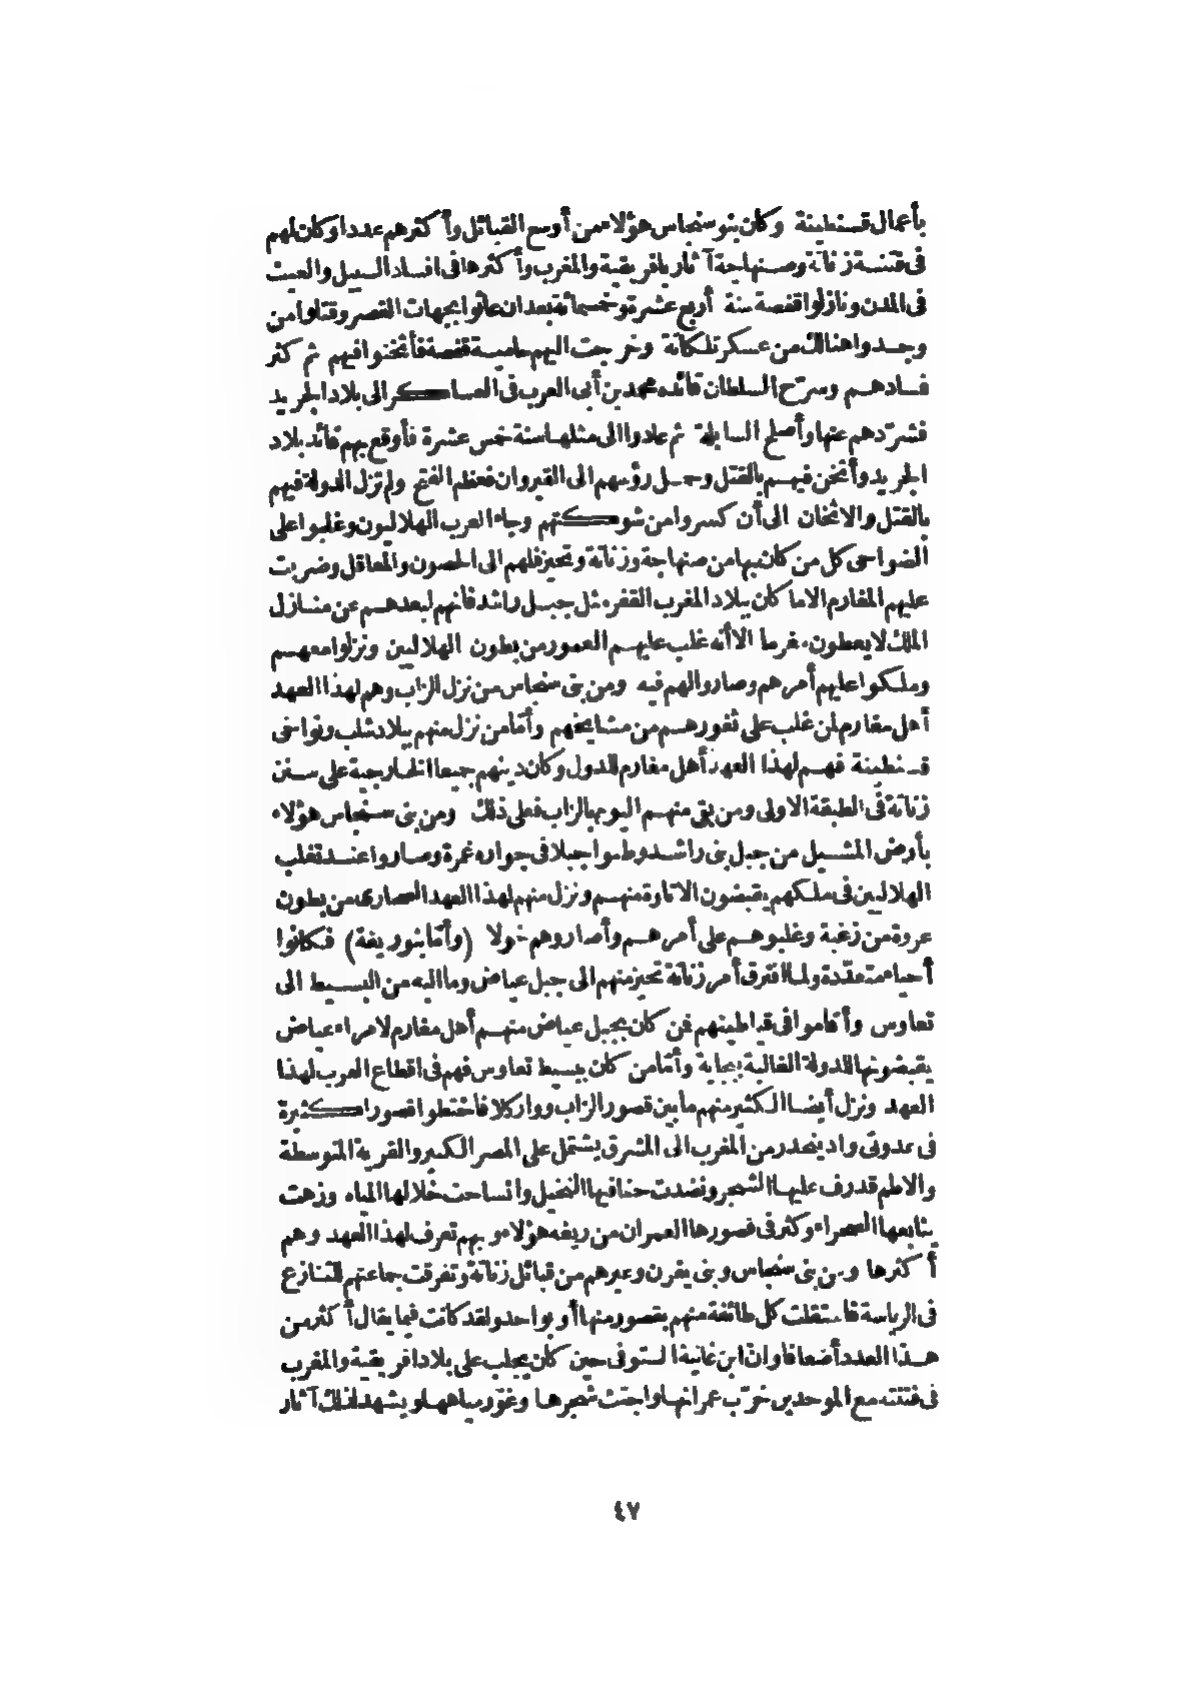 بأعمال قسنطينة وكان بنو سنجاس هؤلاء من أوسع القبائل وأكثرهم عددا وكان لهم
فى فتنة زناتة وصنهاجة آثار بافريقية والمغرب وأكثرها فى افساد السبيل والعيث
فى المدن ونازلوا قفصة سنة أربع عشرة وخمسمائة بعد ان عاثوا بجهات القصر وقتلوا من
وجدوا هنالك من عسكر تلكاتة وخرجت اليهم حامية قفصة فأثخنوا فيهم ثم كثر
فسادهم وسرّح السلطان قائده محمد بن أبى العرب فى العساكر الى بلاد الجريد
فشرّدهم عنها وأصلح السابلة ثم عادوا الى مثلها سنة خمس عشرة فأوقع بهم قائد بلاد
الجريد وأثخن فيهم بالقتل وحمل رؤسهم الى القيروان فعظم الفتح ولم تزل الدولة فيهم
بالقتل والاثخان الى أن كسروا من شوكتهم وجاء العرب الهلاليون وغلبوا على
الضواحى كل من كان بها من صنهاجة وزناتة وتحيز فلهم الى الحصون والمعاقل وضربت
عليهم المغارم الا ما كان ببلاد المغرب القفر مثل جبل راشد فانهم لبعدهم عن منازل
الملك لا يعطون مغرما الا أنه غلب عليهم العمور من بطون الهلاليين ونزلوا معهم
وملكوا عليهم أمرهم وصاروا لهم فيه ومن بنى سنجاس من نزل الزاب وهم لهذا العهد
أهل مغارم لمن غلب على ثغورهم من مشايخهم وأمّا من نزل منهم ببلاد شلب ونواحى
قسنطينة فهم لهذا العهد أهل مغارم للدول وكان دينهم جميعا الخارجية على سنن
زناتة فى الطبقة الاولى ومن بقى منهم اليوم بالزاب فعلى ذلك ومن بنى سنجاس هؤلاء
بأرض المشيل من جبل بنى راشد وطنوا جبلا فى جوار غمرة وصاروا عند تغلب
الهلاليين فى ملكهم يقبضون الاتاوة منهم ونزل منهم لهذا العهد الصحارى من بطون
عروة من زغبة وغلبوهم على أمرهم وأصاروهم خولا (وأمّا بنو ريغة) فكانوا
أحياء متعدّدة ولما افترق أمر زناتة تحيز منهم الى جبل عياض وما اليه من البسيط الى
نقاوس وأقاموا فى قياطينهم فمن كان بجبل عياض منهم أهل مغارم لامراء عياض
يقبضونها للدولة الغالبة ببجاية وأمّا من كان ببسيط نقاوس فهم فى اقطاع العرب لهذا
العهد ونزل أيضا الكثير منهم ما بين قصور الزاب وواركلا فاختطوا قصورا كثيرة
فى عدوتى واد ينحدر من المغرب الى المشرق يشتمل على المصر الكبير والقرية المتوسطة
والاطم قد رف عليها الشجر ونضدت حفافيها النخيل وانساحت خلالها المياه وزهت
بنابعها الصحراء وكثر فى قصورها العمران من ريغه هؤلاء وبهم تعرف لهذا العهد وهم
أكثرها ومن بنى سنجاس وبنى يفرن وغيرهم من قبائل زناتة وتفرقت جماعتهم للتنازع
فى الرياسة فاستقلت كل طائفة منهم بقصور منها أو بواحد ولقد كانت فيما يقال أكثر من
هذا العدد أضعافا وان ابن غانية المستوفى حين كان يجلب على بلاد افريقية والمغرب
فى فتنته مع الموحدين خرّب عمرانها واجتث شجرها وغوّر مياهها ويشهد لذلك آثار
٤٧